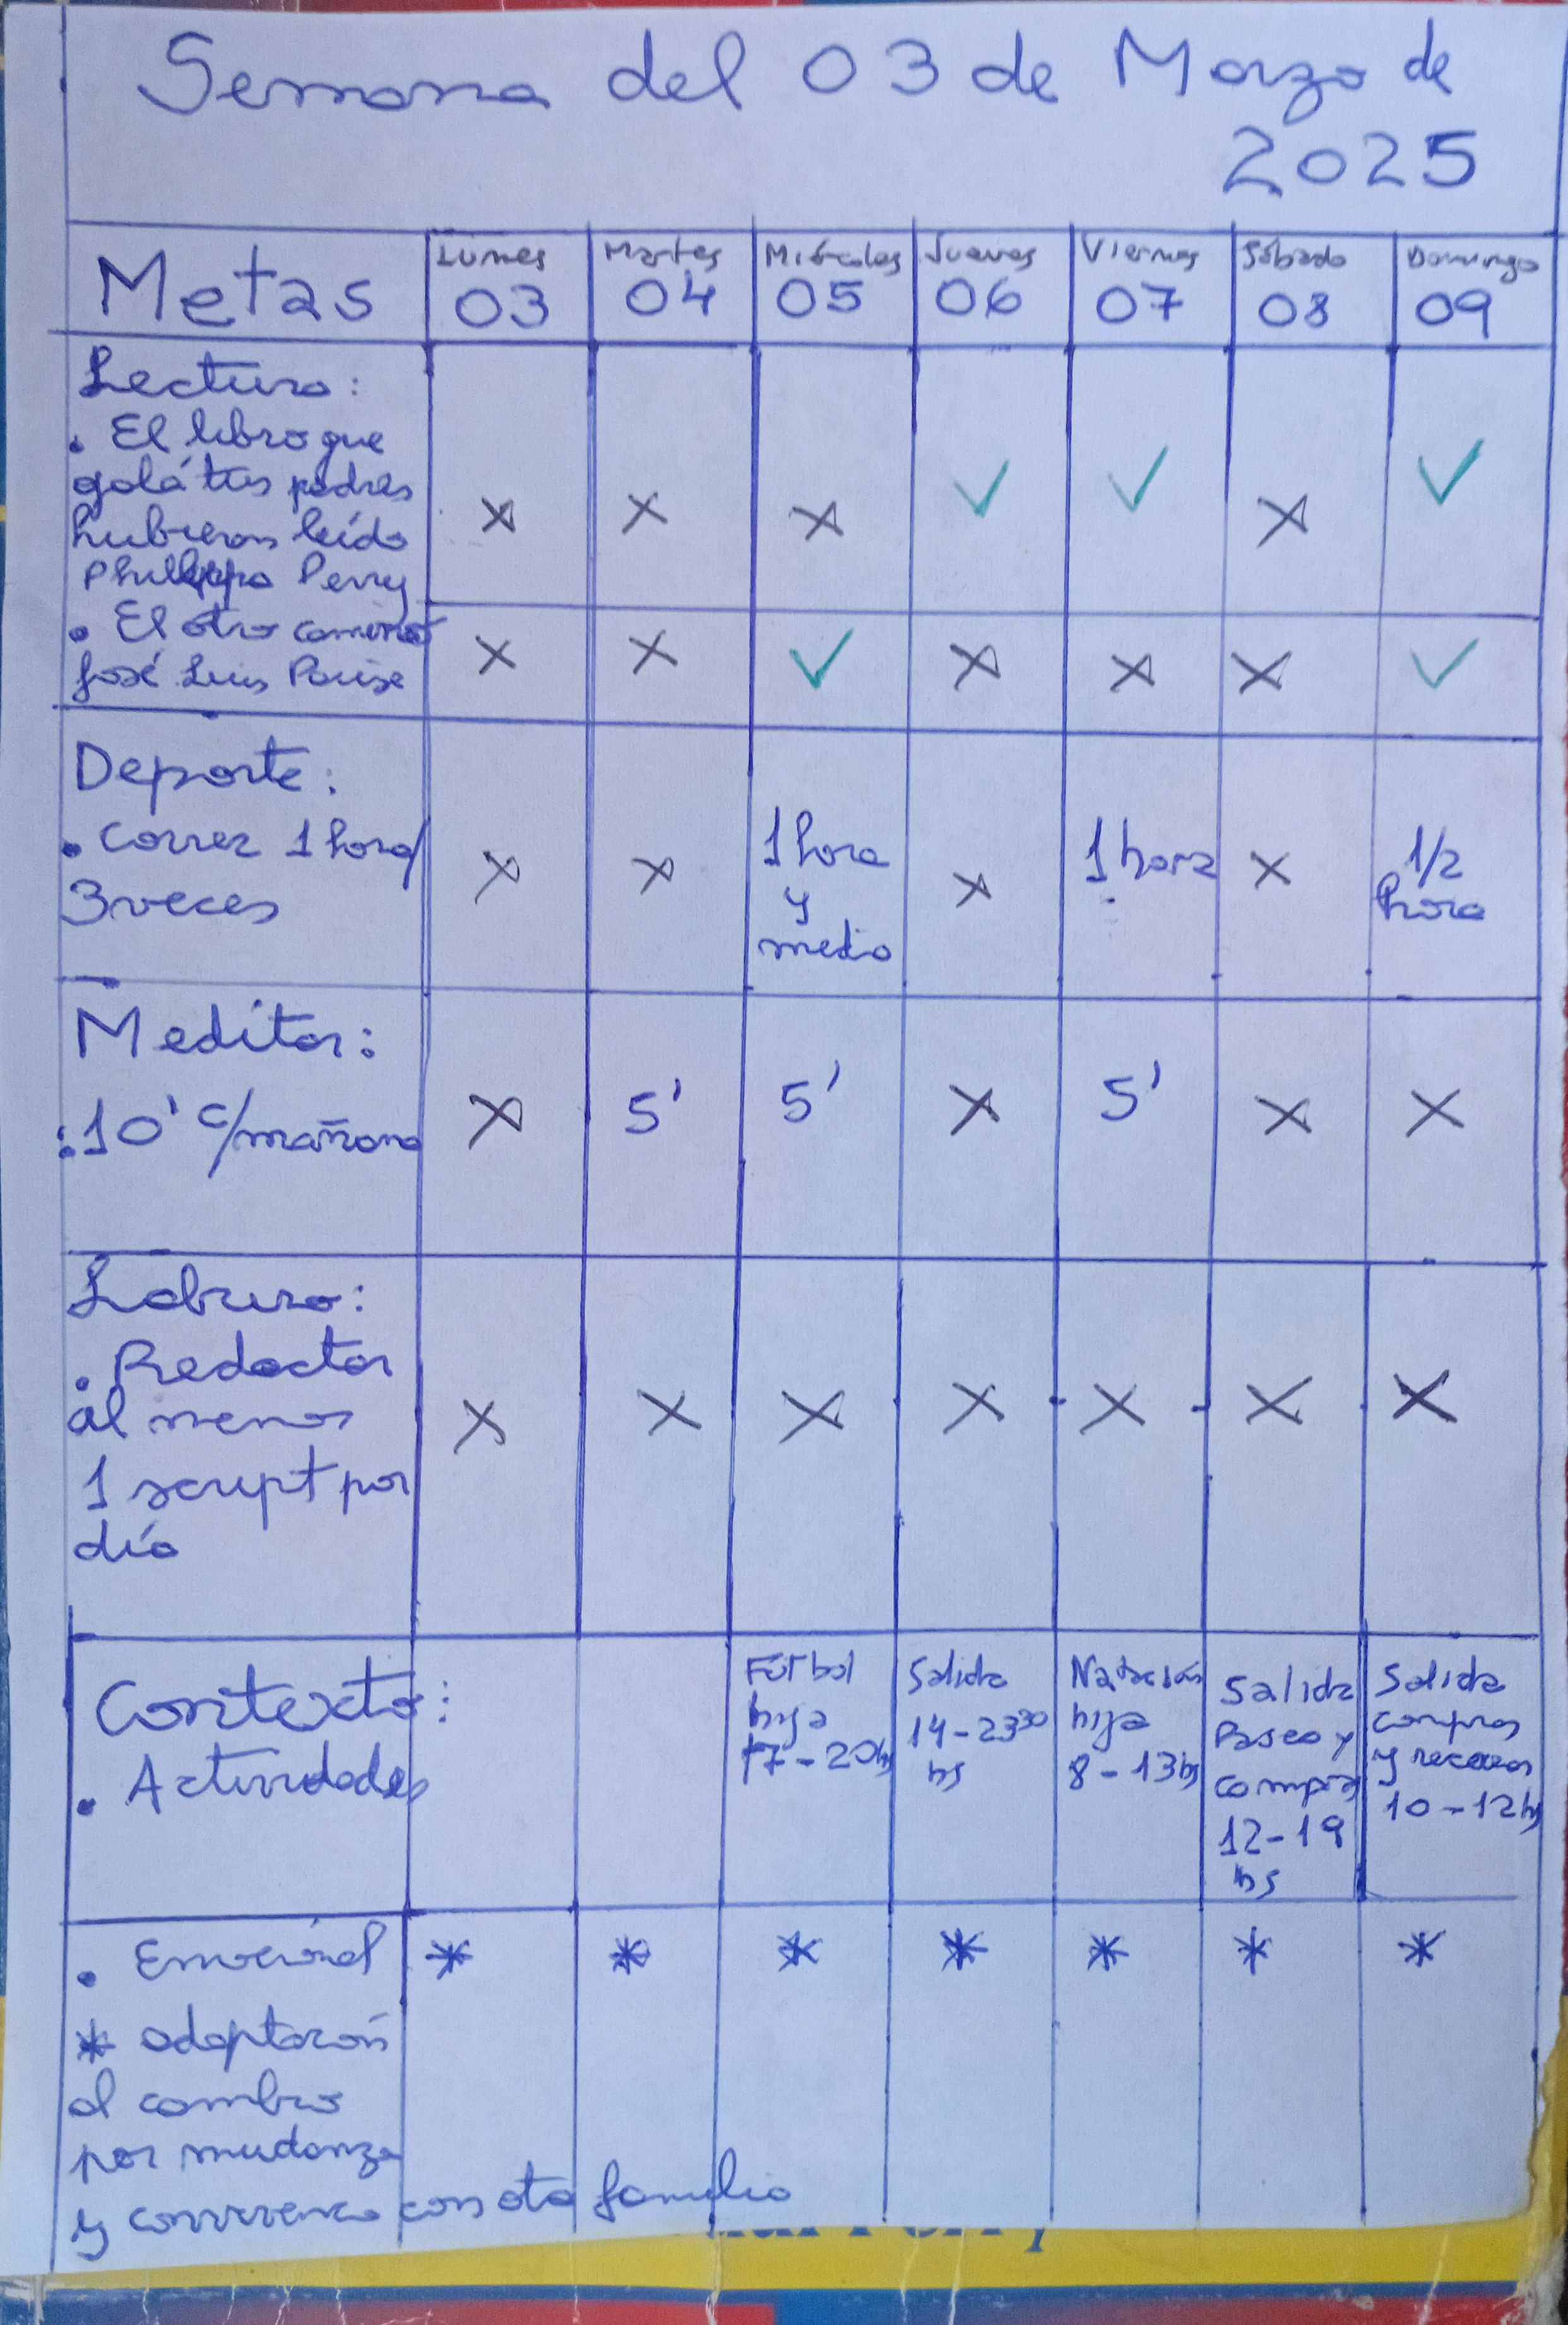 Semana del 03 de Marzo de
2025
Metas
Lunes Martes Miércoles Jueves Viernes Sábado Domingo
03 04 05 06 07 08 09
Lectura:
. El libro que
ojalá tus padres
hubieran leído
Philippa Perry
X X X ✓ ✓ X ✓
. El otro camino
José Luis Parise
X X ✓ X X X ✓
Deporte:
. Correr 1 hora/
3 veces
X X 1 hora
y
media
X 1 hora X 1/2
hora
Meditar:
:10' c/mañana
X 5' 5' X 5' X X
Laburo:
. Redactar
al menos
1 script por
día
X X X X X X X
Contexto:
. Actividades
Fútbol
hija
17-20hs
Salida
14-23³⁰
hs
Natación
hija
8-13hs
Salida
Paseo y
compras
12-19
hs
Salida
compras
y
10-12hs
. Emocional
* * * * * * *
* adaptación
al cambio
por mudanza
y convivencia con otra familia